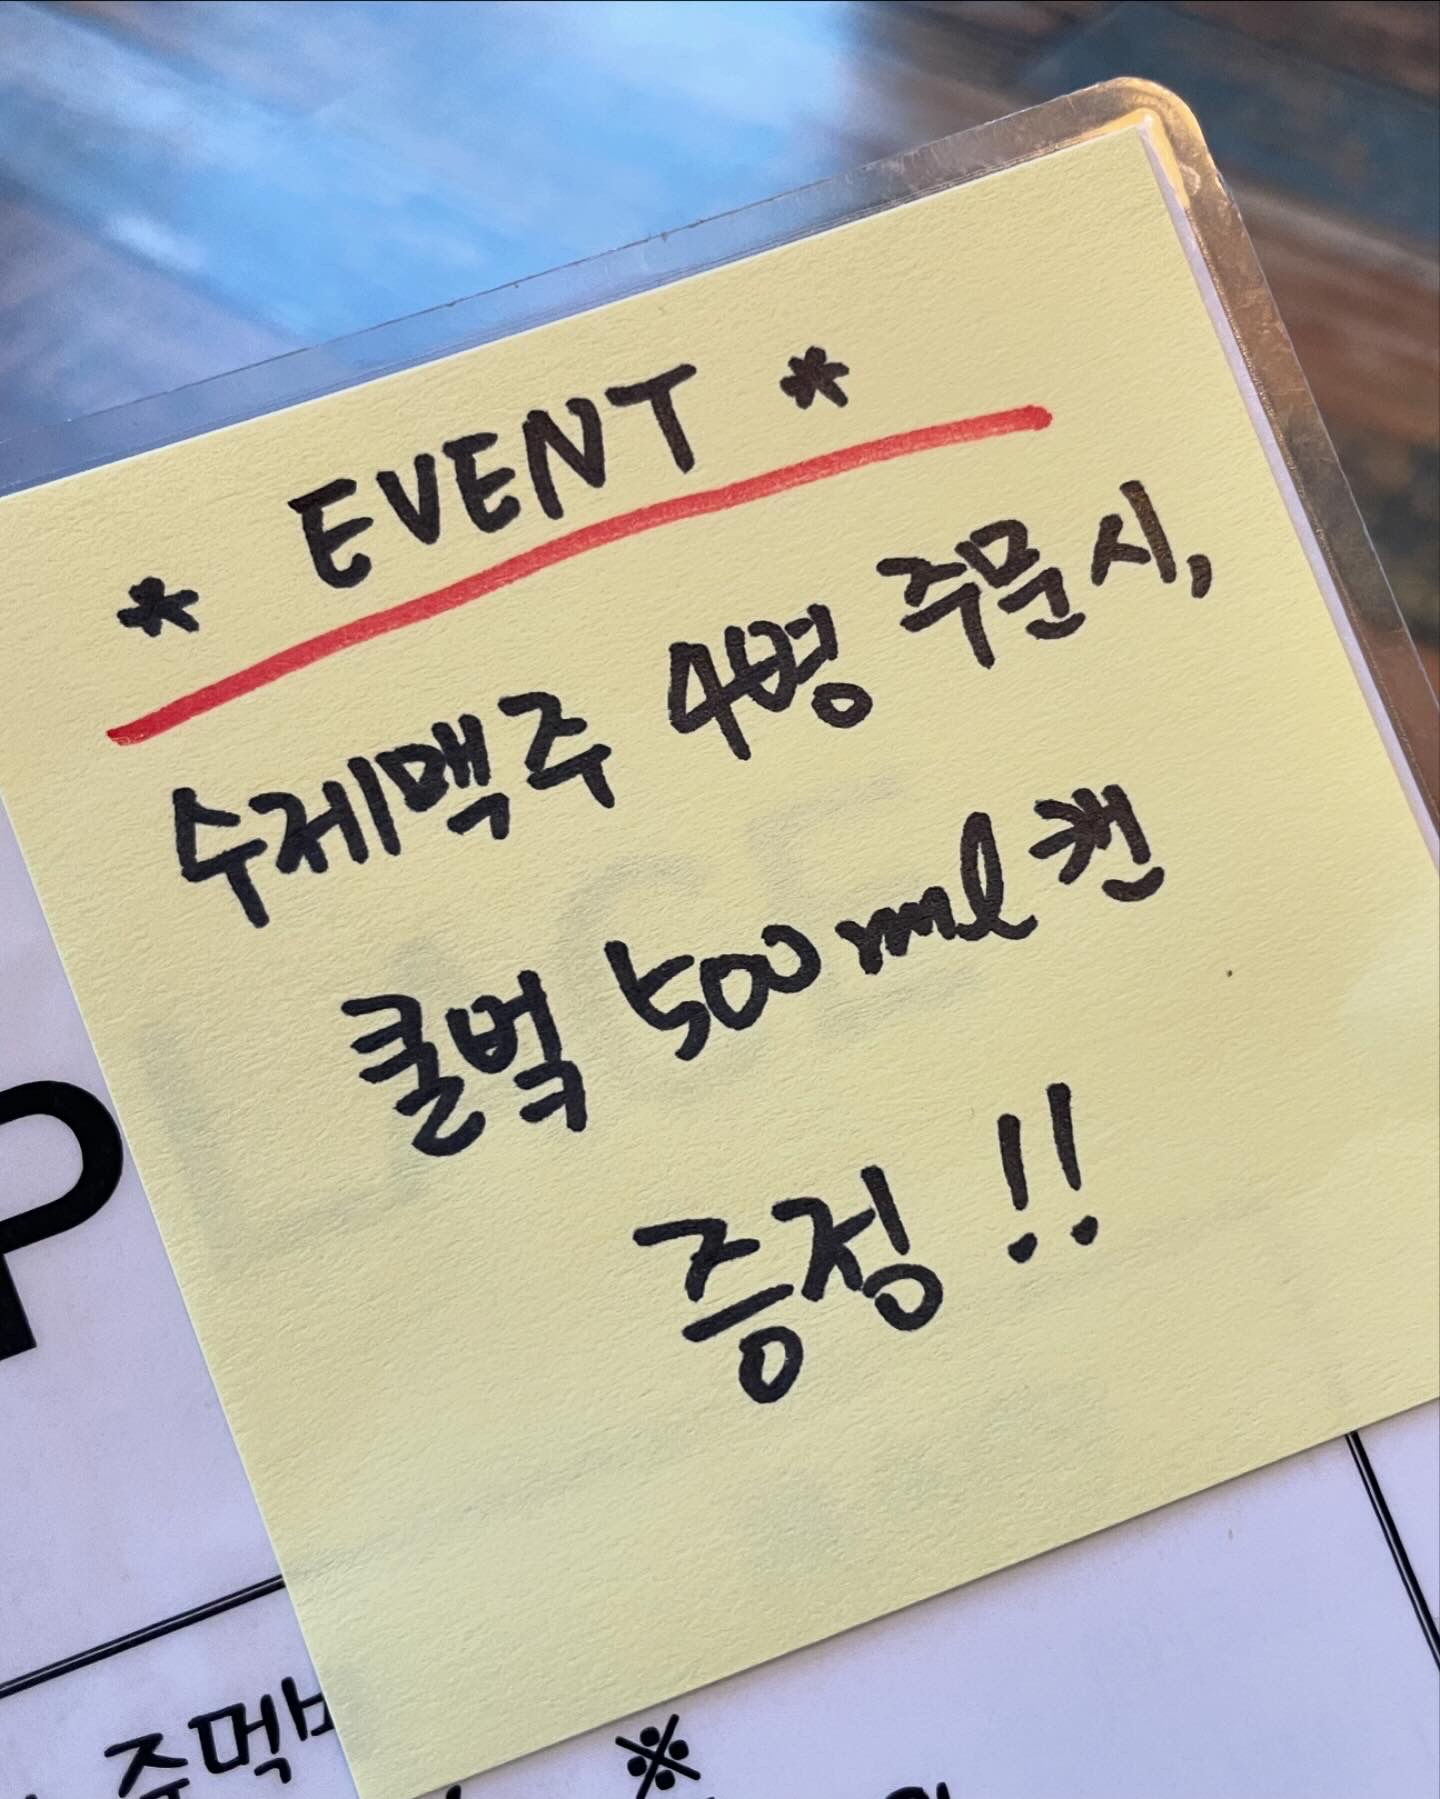 * EVENT *
수제맥주 4병 주문시,
쿨벅 500ml캔
증정!!
P
주먹
※